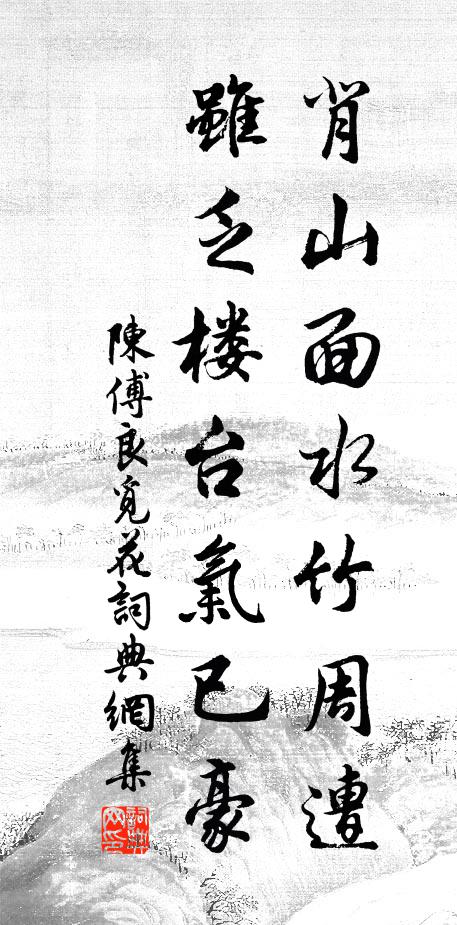 背山面水竹周遭
雖乏楼台氣已豪
陳傅良覓花詞典網集